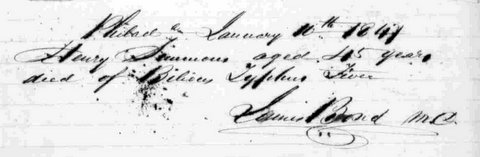 Philad a January 10th 1847
Henry Simmons aged 45 years
died of Bilious Typhus Fever
James Bond M.D.